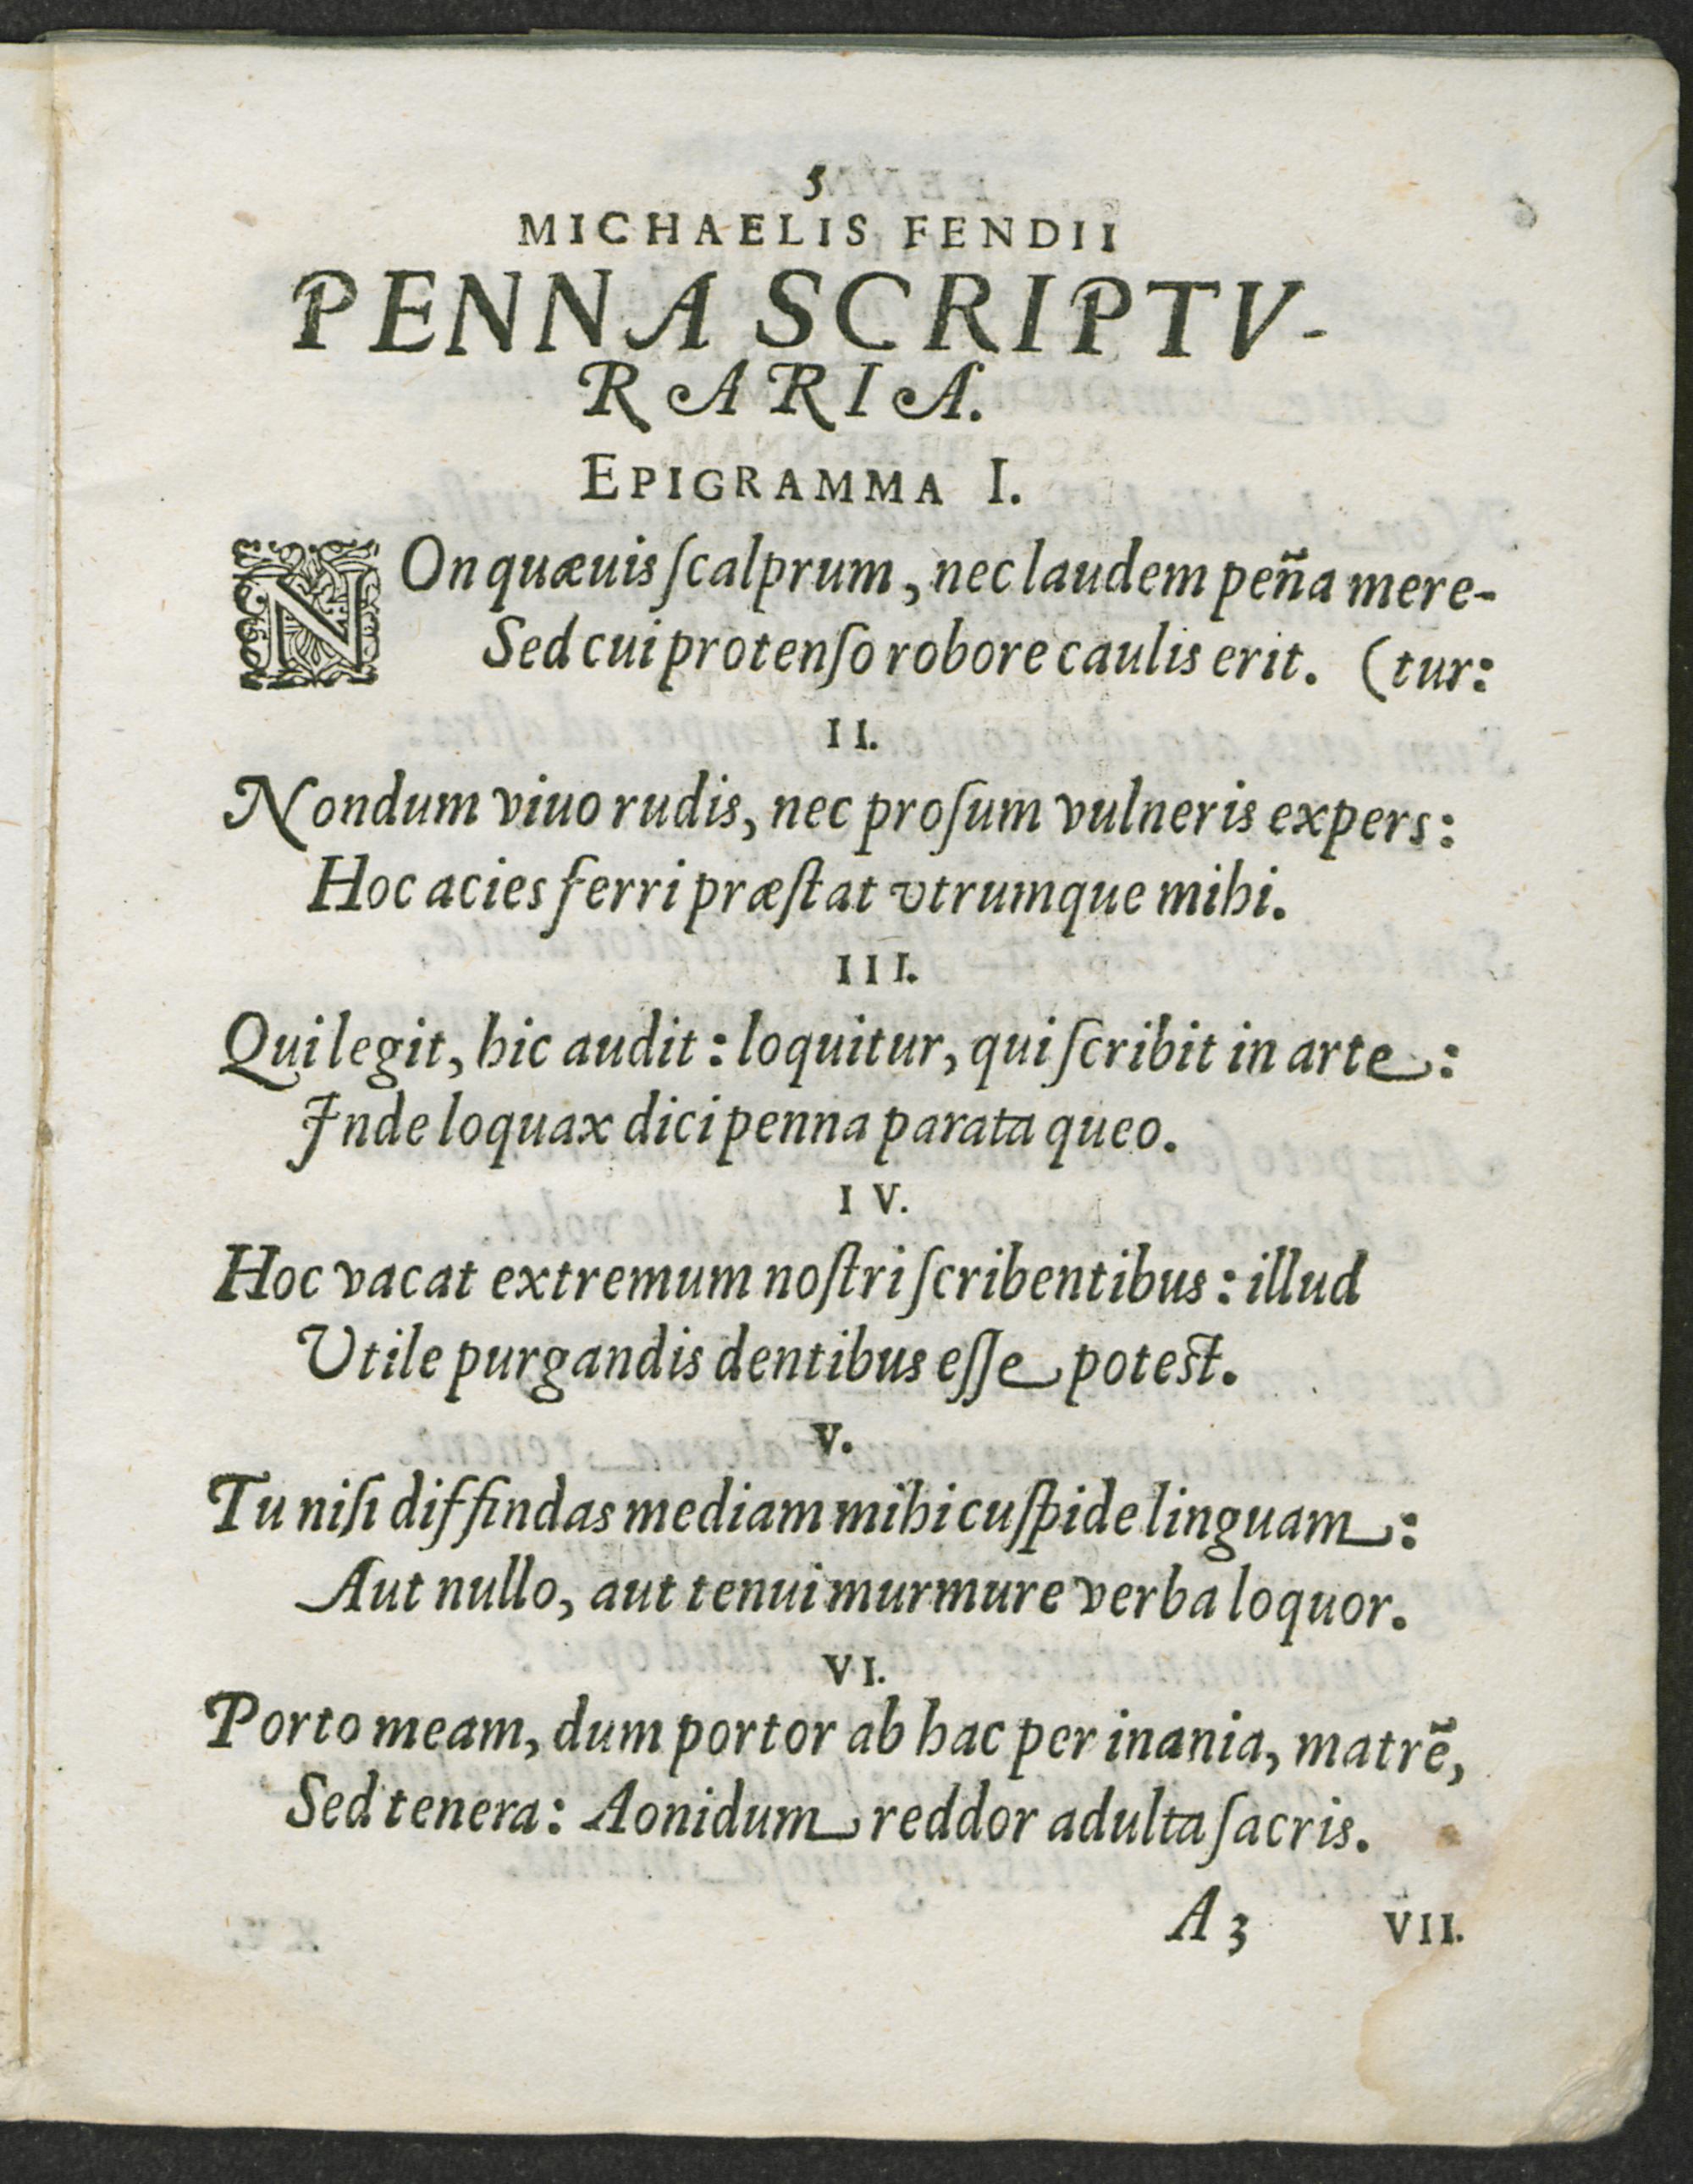 5
MICHAELIS FENDII
PENNA SCRIPTV-
RARIA.
EPIGRAMMA I.
NOn quæuis ſcalprum, nec laudem peña mere-
Sed cui protenſo robore caulis erit. (tur:
II.
Nondum viuo rudis, nec proſum vulneris expers:
Hoc acies ferri præſtat vtrumque mihi.
III.
Qui legit, hic audit: loquitur, qui ſcribit in arte:
Inde loquax dici penna parata queo.
IV.
Hoc vacat extremum noſtri ſcribentibus: illud
Utile purgandis dentibus eſſe potest.
V.
Tu niſi diffindas mediam mihi cuſpide linguam:
Aut nullo, aut tenui murmure verba loquor.
VI.
Porto meam, dum portor ab hac per inania, matrē,
Sed tenera: Aonidum reddor adulta ſacris.
A 3 VII.